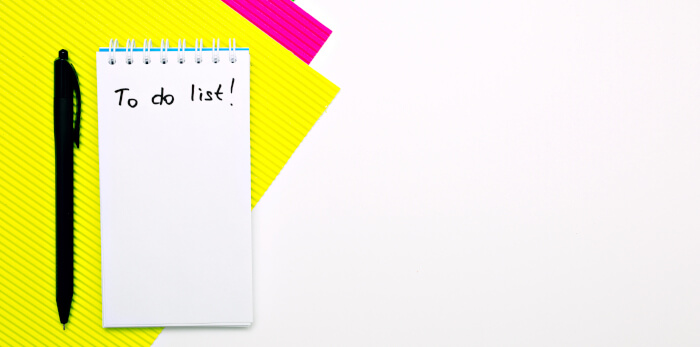 To do list!